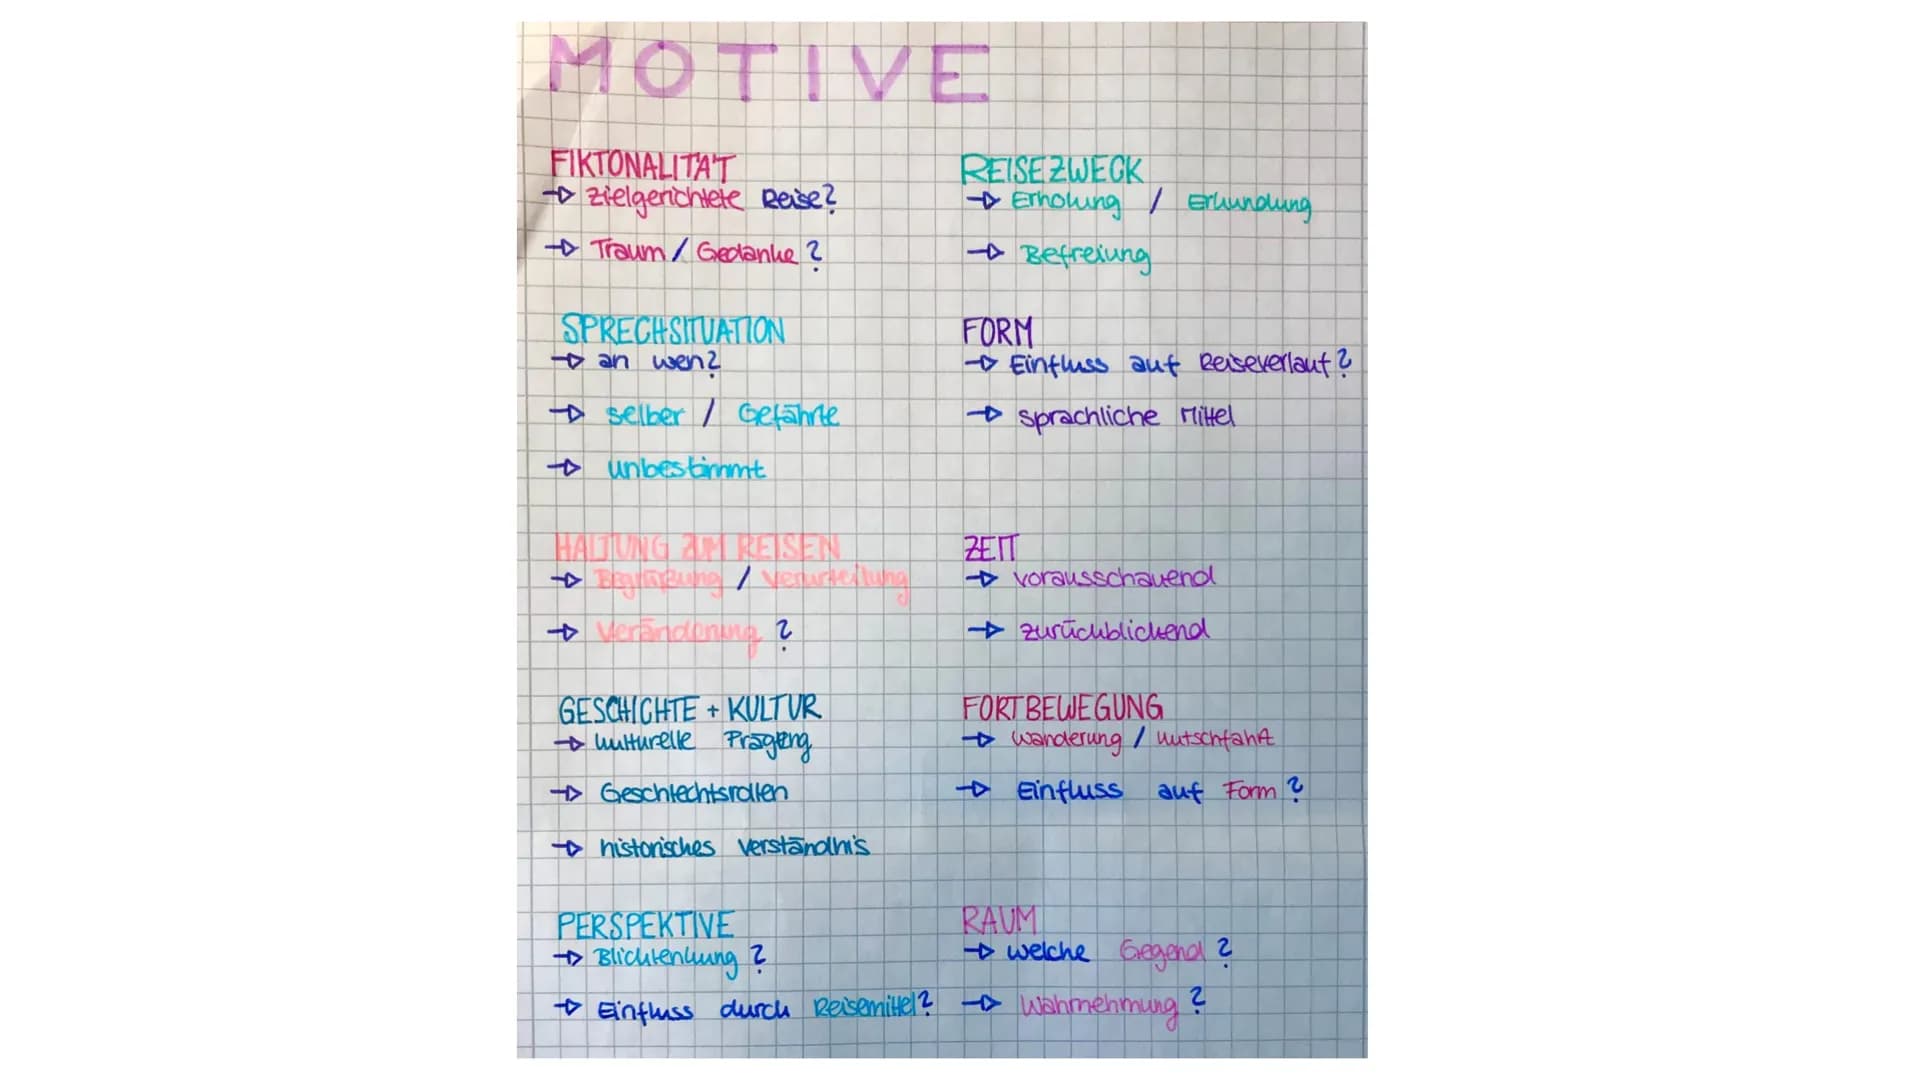 MOTIVE
FIKTONALITÄT
→ zielgerichtete Reise?
→ Traum / Gedanke ?
SPRECHSITUATION
→ an wen?
→ selber / Gefährte
→ unbestimmt
HALTUNG ZUM REISEN
→ Begrüßung / Verurteilung
→ Veränderung ?
GESCHICHTE + KULTUR
→ kulturelle Prägung
→ Geschlechtsrollen
→ historisches Verständnis
PERSPEKTIVE
→ Blicklenkung ?
→ Einfluss durch Reisemittel?
REISEZWECK
→ Erholung / Erkundung
→ Befreiung
FORM
→ Einfluss auf Reiseverlauf?
→ sprachliche Mittel
ZEIT
→ vorausschauend
→ zurückblickend
FORTBEWEGUNG
→ Wanderung / Kutschfahrt
→ Einfluss auf Form ?
RAUM
→ welche Gegend ?
→ Wahrnehmung ?